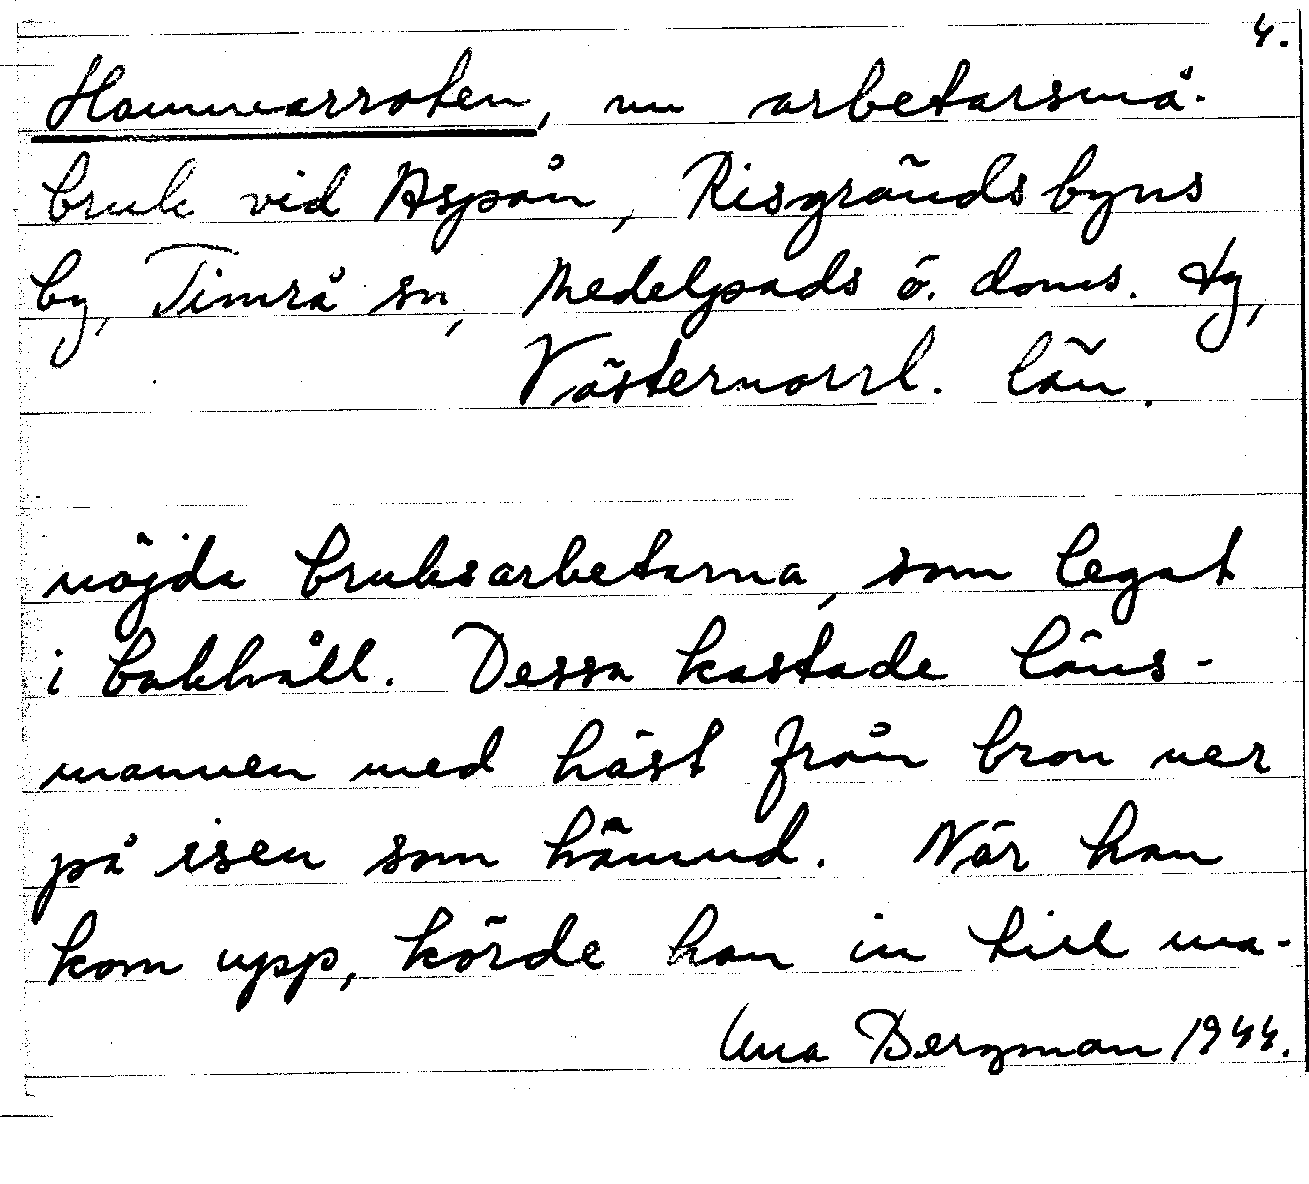 4.
Hammarroten, nu arbetarsmå-
bruk vid Aspån, Risgrändsbyns
by, Timrå sn, Medelpads ö. doms. tg,
Västernorrl. län.
nöjda bruksarbetarna, som legat
i bakhåll. Dessa kastade läns-
mannen med häst från bron ner
på isen som hämnd. När han
kom upp, körde han in till ma-
Una Bergman 1944.